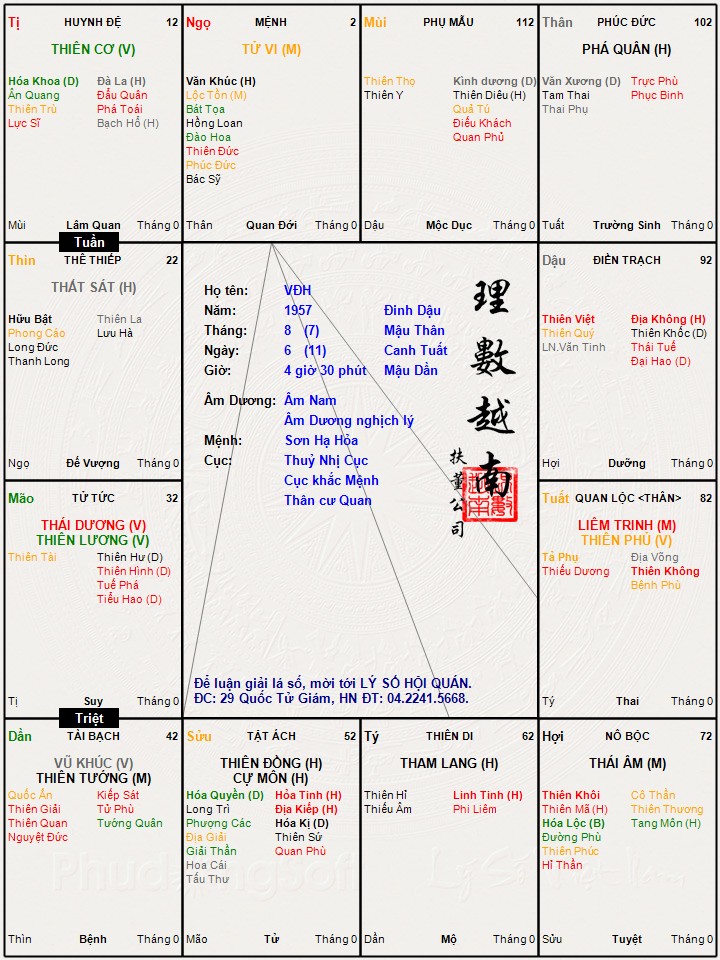 Tị HUYNH ĐỆ 12
THIÊN CƠ (V)
Hóa Khoa (D) Đà La (H)
Ân Quang Đẩu Quân
Thiên Trù Phá Toái
Lực Sĩ Bạch Hổ (H)
Mùi Lâm Quan Tháng 0
Ngọ MỆNH 2
TỬ VI (M)
Văn Khúc (H)
Lộc Tồn (M)
Bát Tọa
Hồng Loan
Đào Hoa
Thiên Đức
Phúc Đức
Bác Sỹ
Thân Quan Đới Tháng 0
Mùi PHỤ MẪU 112
Thiên Thọ Kình dương (D)
Thiên Y Thiên Diêu (H)
Quả Tú
Điếu Khách
Quan Phủ
Dậu Mộc Dục Tháng 0
Thân PHÚC ĐỨC 102
PHÁ QUÂN (H)
Văn Xương (D) Trực Phù
Tam Thai Phục Binh
Thai Phụ
Tuất Trường Sinh Tháng 0
Tuần
Thìn THÊ THIẾP 22
THẤT SÁT (H)
Hữu Bật Thiên La
Phong Cáo Lưu Hà
Long Đức
Thanh Long
Ngọ Đế Vượng Tháng 0
Họ tên: VĐH
Năm: 1957 Đinh Dậu
Tháng: 8 (7) Mậu Thân
Ngày: 6 (11) Canh Tuất
Giờ: 4 giờ 30 phút Mậu Dần
Âm Dương: Âm Nam
Âm Dương nghịch lý
Mệnh: Sơn Hạ Hỏa
Cục: Thuỷ Nhị Cục
Cục khắc Mệnh
Thân cư Quan
理數越南
扶董公司
Để luận giải lá số, mời tới LÝ SỐ HỘI QUÁN.
ĐC: 29 Quốc Tử Giám, HN ĐT: 04.2241.5668.
Dậu ĐIỀN TRẠCH 92
Thiên Việt Địa Không (H)
Thiên Quý Thiên Khốc (D)
LN.Văn Tinh Thái Tuế
Đại Hao (D)
Hợi Dưỡng Tháng 0
Mão TỬ TỨC 32
THÁI DƯƠNG (V)
THIÊN LƯƠNG (V)
Thiên Tài Thiên Hư (D)
Thiên Hình (D)
Tuế Phá
Tiểu Hao (D)
Tị Suy Tháng 0
Tuất QUAN LỘC <THÂN> 82
LIÊM TRINH (M)
THIÊN PHỦ (V)
Tả Phụ Địa Võng
Thiếu Dương Thiên Không
Bệnh Phù
Tý Thai Tháng 0
Triệt
Dần TÀI BẠCH 42
VŨ KHÚC (V)
THIÊN TƯỚNG (M)
Quốc Ấn Kiếp Sát
Thiên Giải Tử Phù
Thiên Quan Tướng Quân
Nguyệt Đức
Thìn Bệnh Tháng 0
Sửu TẬT ÁCH 52
THIÊN ĐỒNG (H)
CỰ MÔN (H)
Hóa Quyền (D) Hỏa Tinh (H)
Long Trì Địa Kiếp (H)
Phượng Các Hóa Kị (D)
Địa Giải Thiên Sứ
Giải Thần Quan Phù
Hoa Cái
Tấu Thư
Mão Tử Tháng 0
Tý THIÊN DI 62
THAM LANG (H)
Thiên Hỉ Linh Tinh (H)
Thiếu Âm Phi Liêm
Dần Mộ Tháng 0
Hợi NÔ BỘC 72
THÁI ÂM (M)
Thiên Khôi Cô Thần
Thiên Mã (H) Thiên Thương
Hóa Lộc (B) Tang Môn (H)
Đường Phù
Thiên Phúc
Hỉ Thần
Sửu Tuyệt Tháng 0